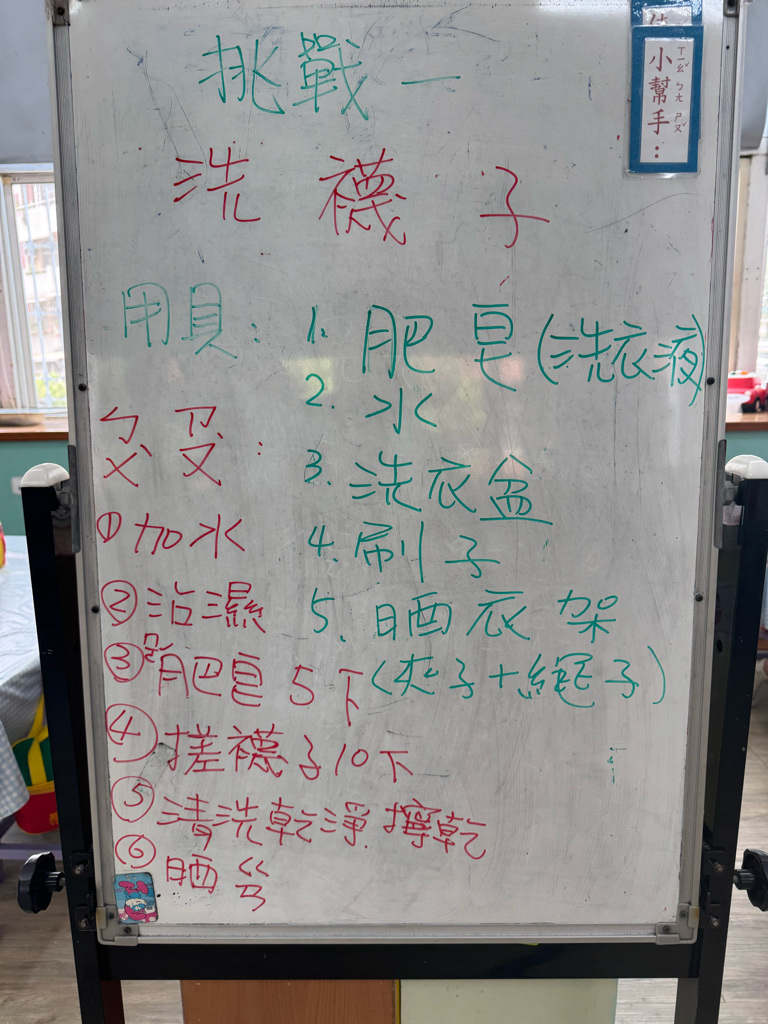 挑戰一
小幫手：
ㄒㄧㄠˇ ㄅㄤ ㄕㄡˇ
洗襪子
用具：
1. 肥皂(洗衣液)
2. 水
3. 洗衣盆
4. 刷子
5. 晒衣架
(夾子+繩子)
ㄅㄨˋ ㄗㄡˋ：
①加水
②沾濕
③肥皂5下
④搓襪子10下
⑤清洗乾淨.擰乾
⑥晒ㄍㄢ